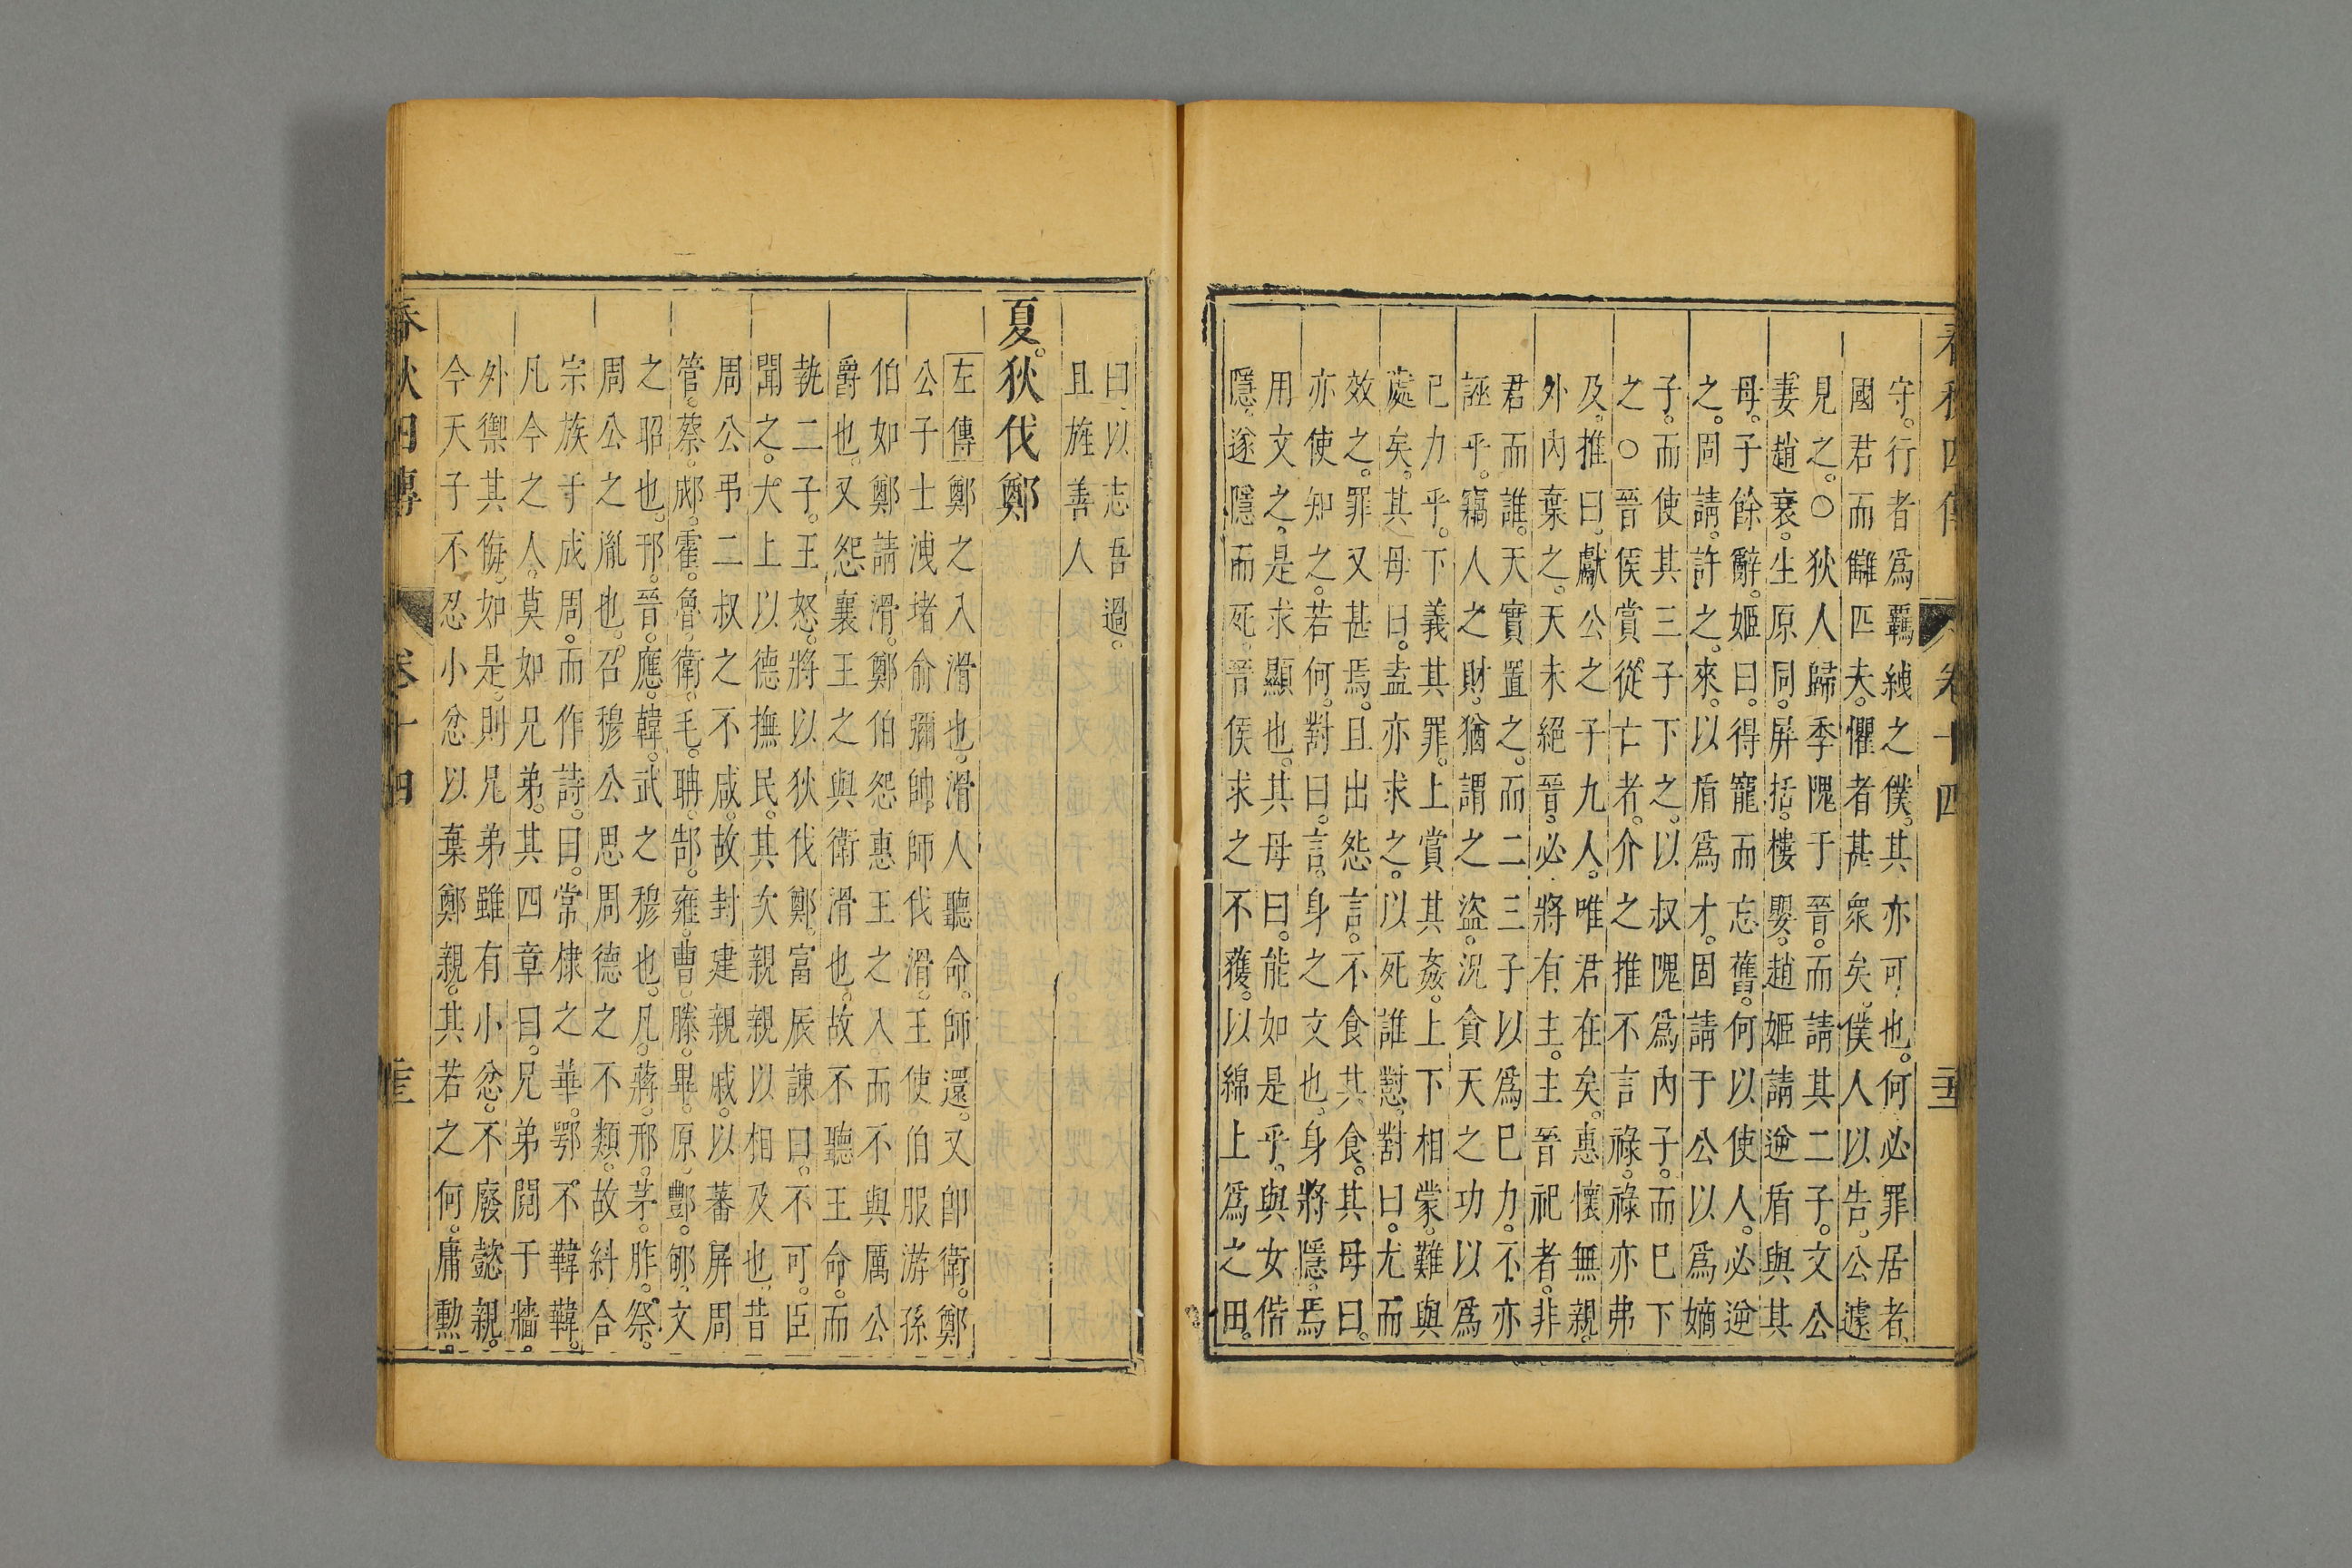 春秋四傳 卷十四
守。行者爲羈絏之僕。其亦可也。何必罪居者
國君而讎匹夫。懼者甚衆矣。僕人以告。公遽
見之。○狄人歸季隗于晉。而請其二子。文公
妻趙衰。生原同。屏括。樓嬰。趙姬請逆盾與其
母。子餘辭。姬曰。得寵而忘舊。何以使人。必逆
之。固請。許之。來。以盾爲才。固請于公以爲嫡
子。而使其三子下之。以叔隗爲內子。而巳下
之○晉侯賞從亡者。介之推不言祿。祿亦弗
及。推曰。獻公之子九人。唯君在矣。惠懷無親。
外內棄之。天未絕晉。必將有主。主晉祀者。非
君而誰。天實置之。而二三子以爲巳力。不亦
誣乎。竊人之財。猶謂之盜。況貪天之功以爲
已力乎。下義其罪。上賞其姦。上下相蒙。難與
處矣。其母曰。盍亦求之。以死誰懟。對曰。尤而
效之。罪又甚焉。且出怨言。不食其食。其母曰。
亦使知之。若何。對曰。言。身之文也。身將隱。焉
用文之。是求顯也。其母曰。能如是乎。與女偕
隱。遂隱而死。晉侯求之不獲。以綿上爲之田。
曰。以志吾過。
且旌善人
夏。狄伐鄭
左傳鄭之入滑也。滑人聽命。師還。又卽衛。鄭
公子士洩堵俞彌帥師伐滑。王使伯服游孫
伯如鄭請滑。鄭伯怨惠王之入。而不與厲公
爵也。又怨襄王之與衛滑也。故不聽王命。而
執二子。王怒。將以狄伐鄭。富辰諫曰。不可。臣
聞之。大上以德撫民。其次親親以相及也。昔
周公弔二叔之不咸。故封建親戚。以蕃屏周
管。蔡。郕。霍。魯。衛。毛。聃。郜。雍。曹。滕。畢。原。酆。郇。文
之昭也。邘。晉。應。韓。武之穆也。凡。蔣。邢。茅。胙。祭。
周公之胤也。召穆公思周德之不類。故糾合
宗族于成周。而作詩。曰。常棣之華。鄂不韡韡。
凡今之人。莫如兄弟。其四章曰。兄弟鬩于牆。
外禦其侮。如是。則兄弟雖有小忿。不廢懿親。
今天子不忍小忿以棄鄭親。其若之何。庸勲。
春秋四傳 卷十四